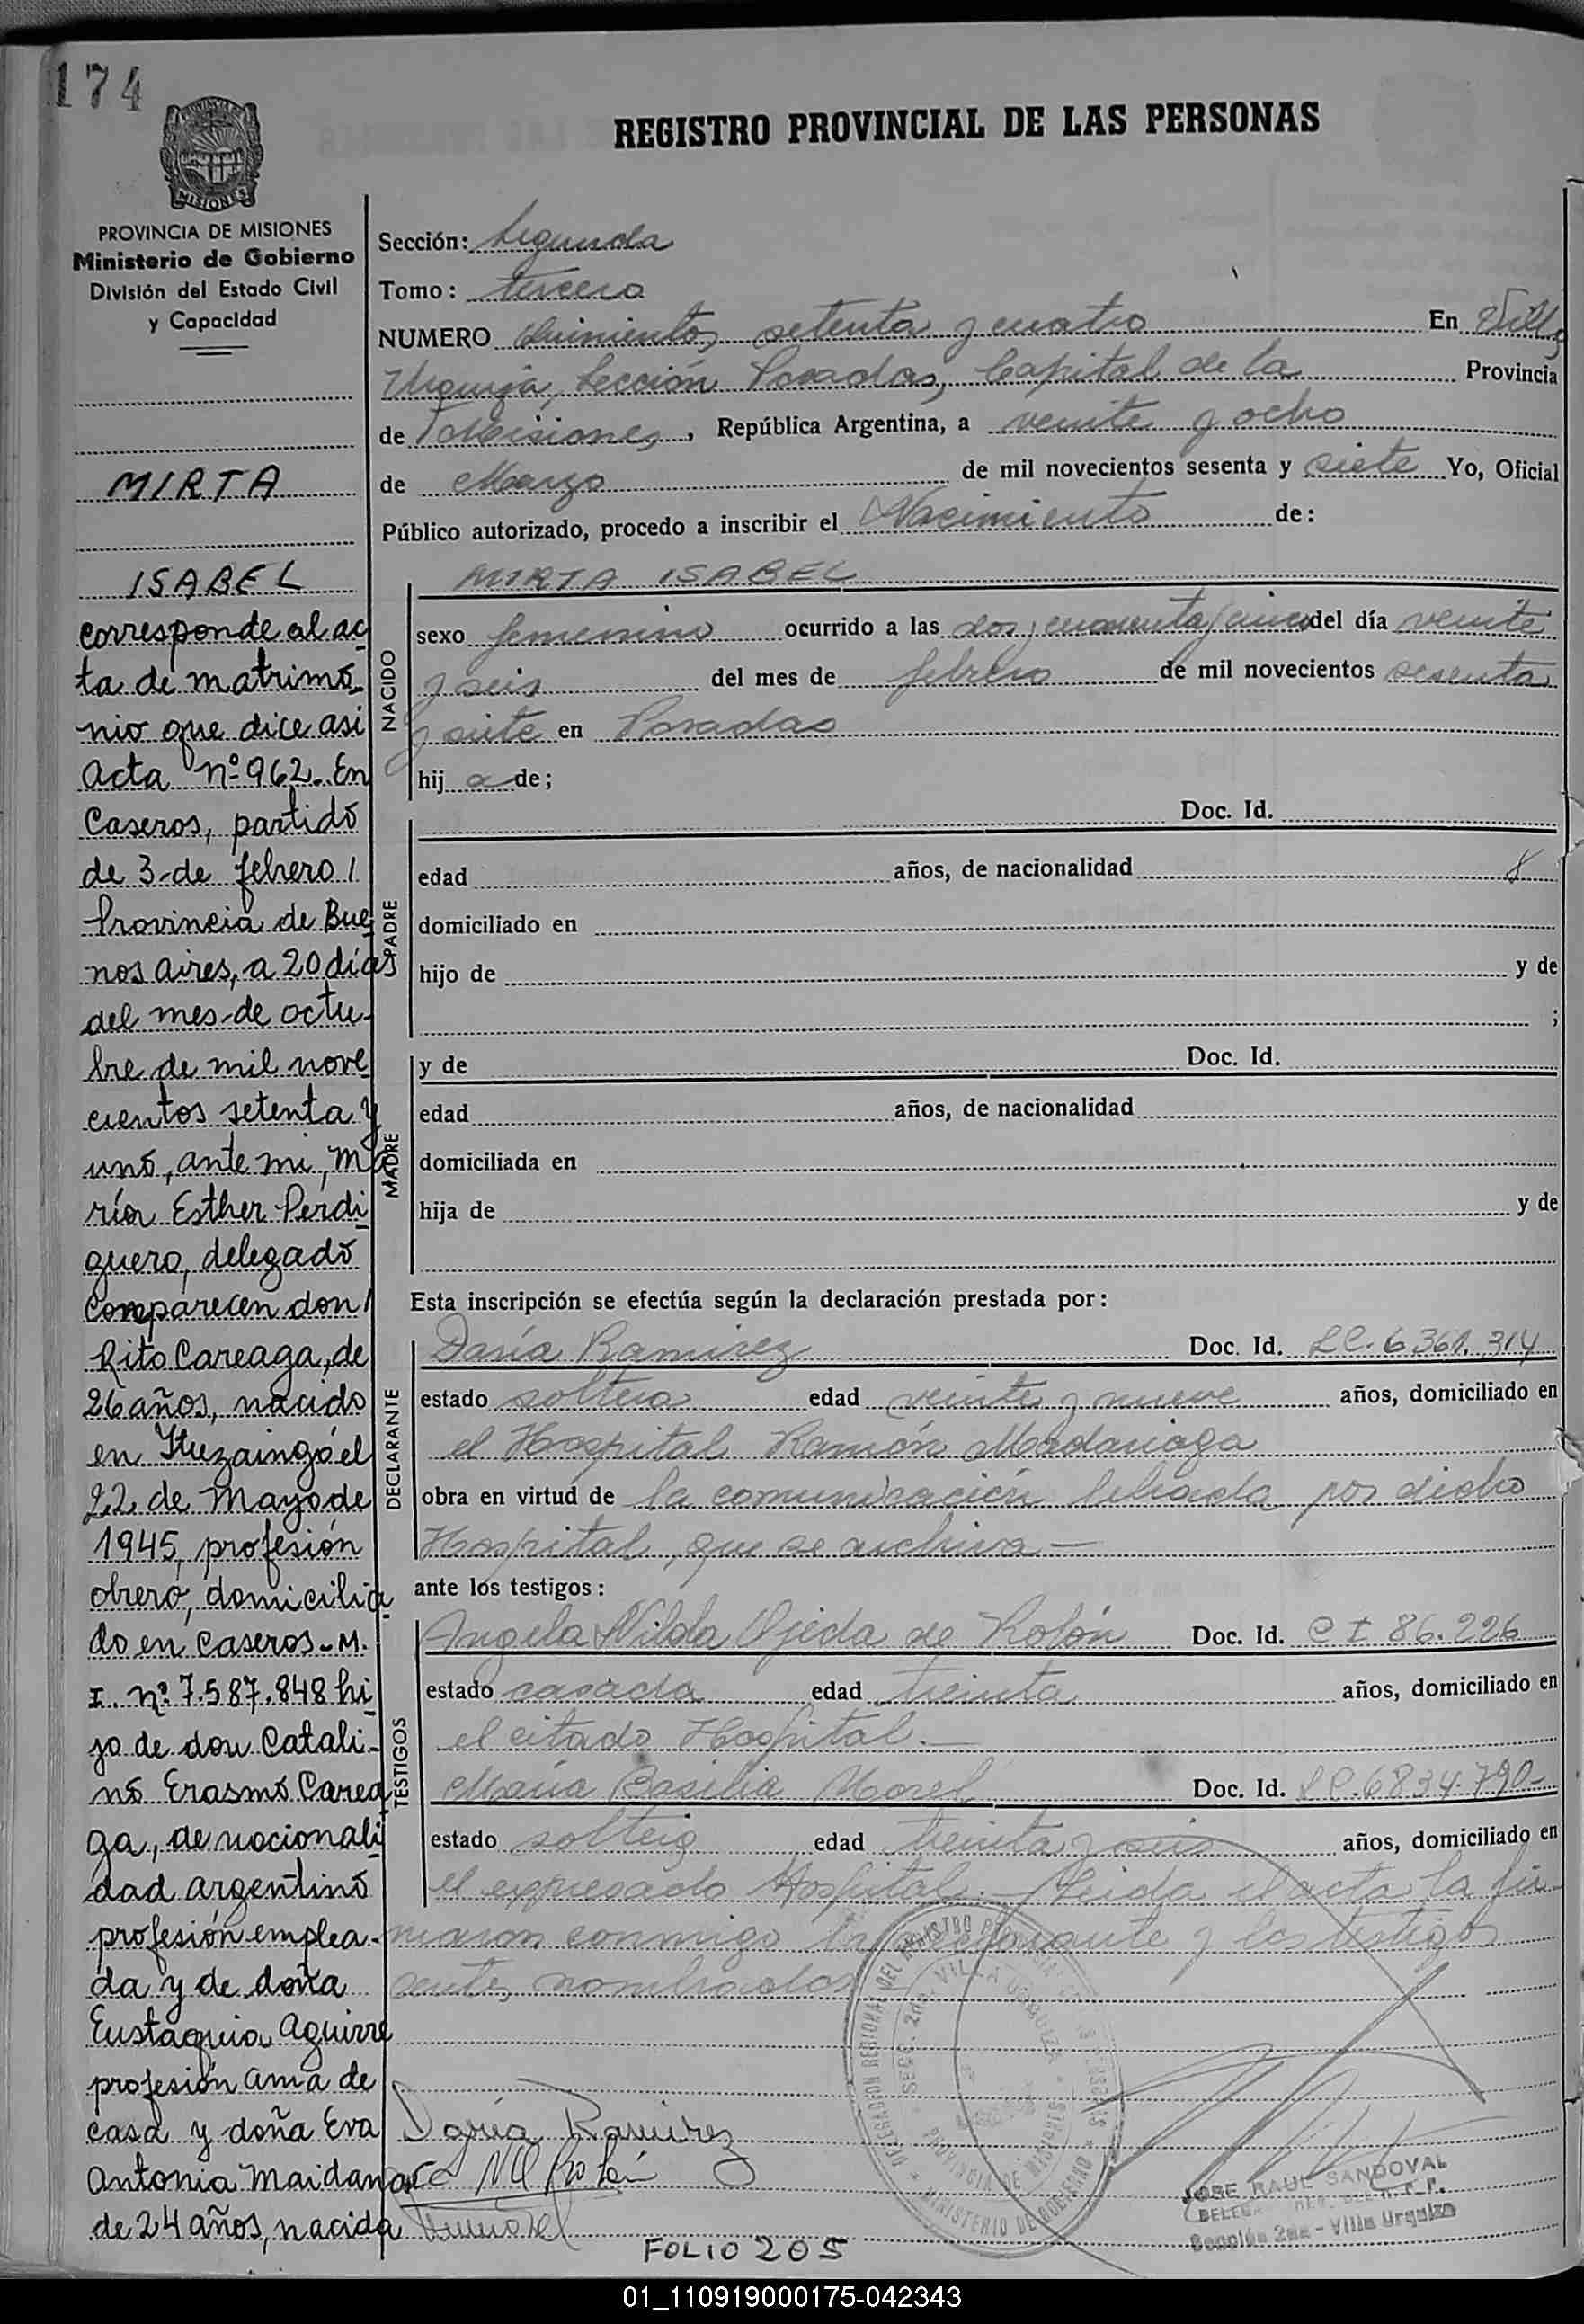 174
REGISTRO PROVINCIAL DE LAS PERSONAS
MISIONES
PROVINCIA DE MISIONES
Ministerio de Gobierno
División del Estado Civil
y Capacidad
MIRTA
ISABEL
corresponde al ac
ta de matrimo
nio que dice asi
Acta nº 962. En
Caseros, partido
de 3 de febrero /
Provincia de Bue
nos aires, a 20 días
del mes de octu-
bre de mil nove
cientos setenta y
uno, ante mi, Ma
ría Esther Perdi
guero, delegado
Comparecen don /
Rito Careaga, de
26 años, nacido
en Ituzaingó el
22 de Mayo de
1945, profesión
obrero, domicilia
do en Caseros - M.
I. nº 7.587.848 hi
jo de don Catali-
no Erasmo Carea
ga, de nacionali
dad argentino
profesión emplea-
da y de doña
Eustaquia Aguirre
profesión ama de
casa y doña Eva
Antonia Maidana
de 24 años, nacida
Sección: Segunda
Tomo: tercero
NUMERO Quinientos setenta y cuatro En Villa
Urquiza, Sección Posadas, Capital de la Provincia
de Misiones, República Argentina, a veinte y ocho
de Marzo de mil novecientos sesenta y siete Yo, Oficial
Público autorizado, procedo a inscribir el Nacimiento de:
NACIDO
MIRTA ISABEL
sexo femenino ocurrido a las dos y cincuenta y cinco del día veinte
y seis del mes de febrero de mil novecientos sesenta
y siete en Posadas
hij a de;
PADRE
Doc. Id.
edad años, de nacionalidad
domiciliado en
hijo de y de
;
MADRE
y de Doc. Id.
edad años, de nacionalidad
domiciliada en
hija de y de
Esta inscripción se efectúa según la declaración prestada por:
DECLARANTE
Daría Ramirez Doc. Id. LC. 6361.314
estado soltera edad veinte y nueve años, domiciliado en
el Hospital Ramón Madariaga
obra en virtud de la comunicación librada por dicho
Hospital, que se archiva —
ante los testigos:
TESTIGOS
Angela Nilda Ojeda de Rolón Doc. Id. C I 86.226
estado casada edad treinta años, domiciliado en
el citado Hospital. —
María Basilia Morel Doc. Id. LC. 6834.790-
estado soltera edad treinta y seis años, domiciliado en
el expresado Hospital. — Leida el acta la fir-
maron conmigo la declarante y los testigos
nombrados
Daría Ramirez
FOLIO 205
DELEGACION REGIONAL DEL REGISTRO PROVINCIAL DE LAS PERSONAS
SECC. 2da. VILLA URQUIZA
PROVINCIA DE MISIONES
MINISTERIO DE GOBIERNO
JOSE RAUL SANDOVAL
Sección 2da - Villa Urquiza
01_110919000175-042343